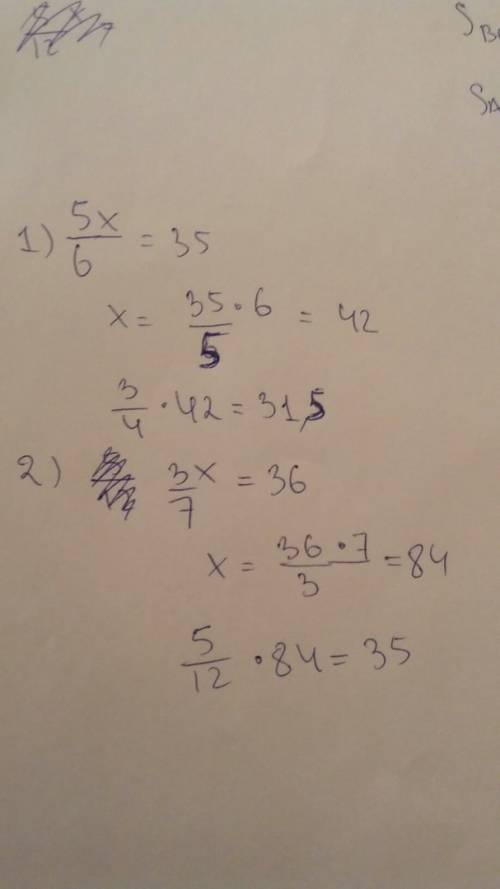 S
S
1) 5x/6 = 35
x = 35·6/5 = 42
3/4 · 42 = 31,5
2) 3x/7 = 36
x = 36·7/3 = 84
5/12 · 84 = 35